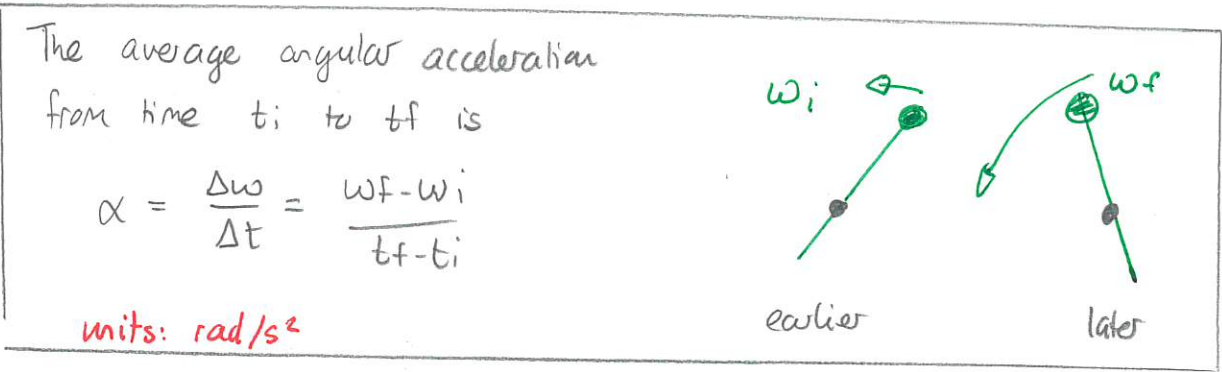 The average angular acceleration
from time ti to tf is
α = Δω/Δt = ωf-ωi/tf-ti
units: rad/s²
ωi
ωf
earlier
later